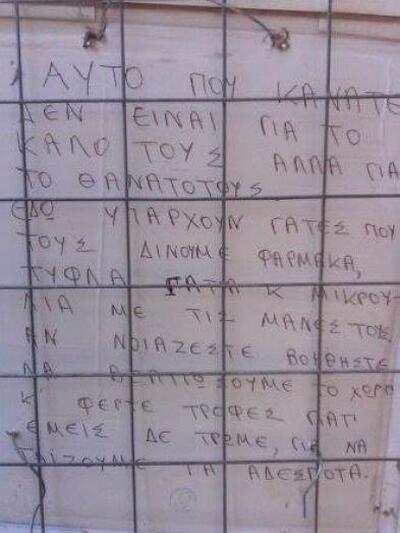 ΑΥΤΟ ΠΟΥ ΚΑΝΑΤΕ
ΔΕΝ ΕΙΝΑΙ ΓΙΑ ΤΟ
ΚΑΛΟ ΤΟΥΣ ΑΛΛΑ ΓΙΑ
ΤΟ ΘΑΝΑΤΟ ΤΟΥΣ
ΕΔΩ ΥΠΑΡΧΟΥΝ ΓΑΤΕΣ ΠΟΥ
ΤΟΥΣ ΔΙΝΟΥΜΕ ΦΑΡΜΑΚΑ,
ΤΥΦΛΑ ΓΑΤΑ Κ ΜΙΚΡΟΥ-
ΛΙΑ ΜΕ ΤΙΣ ΜΑΝΕΣ ΤΟΥΣ.
ΑΝ ΝΟΙΑΖΕΣΤΕ ΒΟΥΘΗΣΤΕ
ΝΑ ΒΕΛΤΙΩΣΟΥΜΕ ΤΟ ΧΩΡΟ
Κ' ΦΕΡΤΕ ΤΡΟΦΕΣ ΓΙΑΤΙ
ΕΜΕΙΣ ΔΕ ΤΡΩΜΕ, ΓΙΑ ΝΑ
ΤΑΙΖΟΥΜΕ ΤΑ ΑΔΕΣΠΟΤΑ.